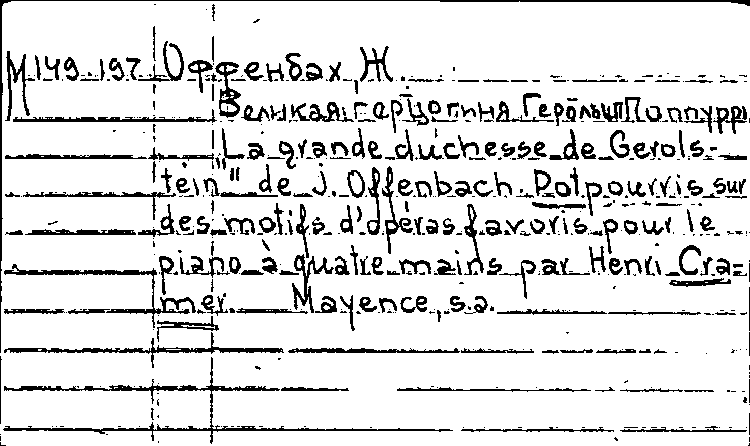 М 149.197 Оффенбах, Ж.
Великая герцогиня Поппурри
"La grande duchesse de Gerols-
tein" de J. Offenbach. Potpourris sur
des motifs d'opéras favoris pour le
piano à quatre mains par Henri Cra=
mer. Mayence, s.a.